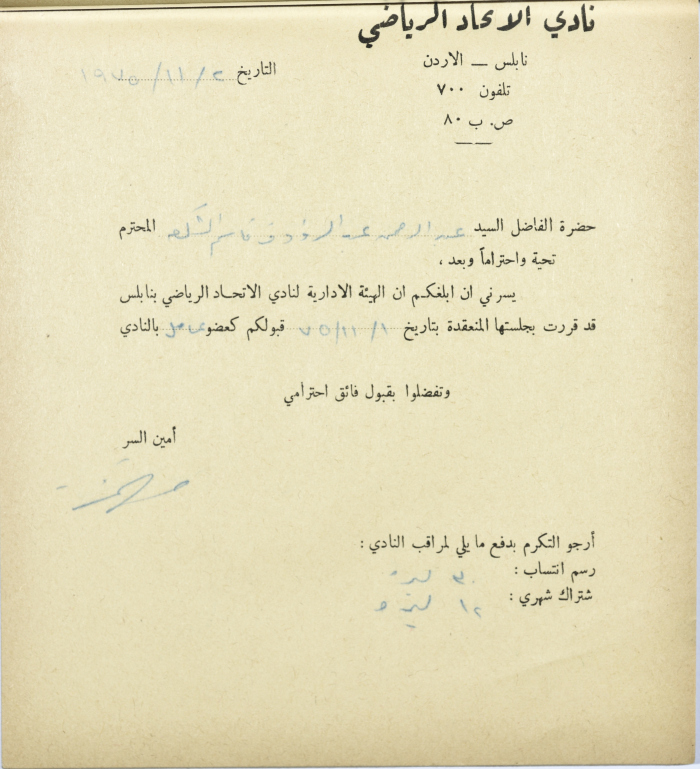 نادي الاتحاد الرياضي
نابلس — الاردن
تلفون ٧٠٠
ص. ب ٨٠
التاريخ ٢ / ١١ / ١٩٧٥
حضرة الفاضل السيد عبد الرحمن عبد الرؤوف قاسم الشكعة المحترم
تحية واحتراماً وبعد ،
يسرني ان ابلغكم ان الهيئة الادارية لنادي الاتحاد الرياضي بنابلس
قد قررت بجلستها المنعقدة بتاريخ ١ / ١١ / ٧٥ قبولكم كعضو عامل بالنادي
وتفضلوا بقبول فائق احترامي
أمين السر
أرجو التكرم بدفع ما يلي لمراقب النادي :
رسم انتساب : ليرة
شتراك شهري : ليرة